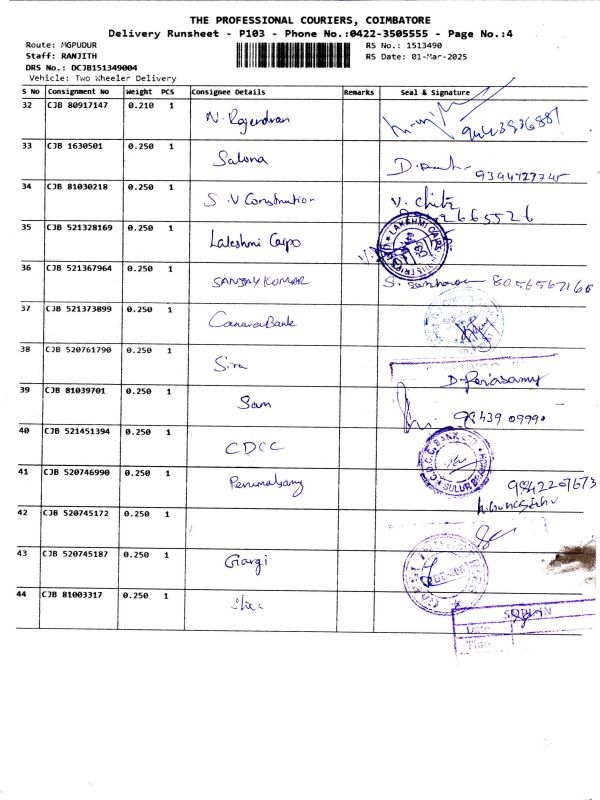 THE PROFESSIONAL COURIERS, COIMBATORE
Delivery Runsheet - P103 - Phone No.:0422-3505555 - Page No.:4
Route: MGPUDUR RS No.: 1513490
Staff: RANJITH RS Date: 01-Mar-2025
DRS No.: DCJB151349004
Vehicle: Two Wheeler Delivery
S No Consignment No Weight PCS Consignee Details Remarks Seal & Signature
32 CJB 80917147 0.210 1 N. Rajendran
33 CJB 1630501 0.250 1 Salona
34 CJB 81030218 0.250 1 S.V Construction
35 CJB 521328169 0.250 1 Lakshmi Capo
36 CJB 521367964 0.250 1 SANJAY KUMAR 8056567166
37 CJB 521373899 0.250 1 Canara Bank
38 CJB 520761790 0.250 1
D. Periasamy
39 CJB 81039701 0.250 1 Sam 98439 09990
40 CJB 521451394 0.250 1 CDCC
C.D.C.C. BANK LTD SULUR BRANCH
41 CJB 520746990 0.250 1 9842207673
42 CJB 520745172 0.250 1
43 CJB 520745187 0.250 1 Gargi
44 CJB 81003317 0.250 1
Date
Time